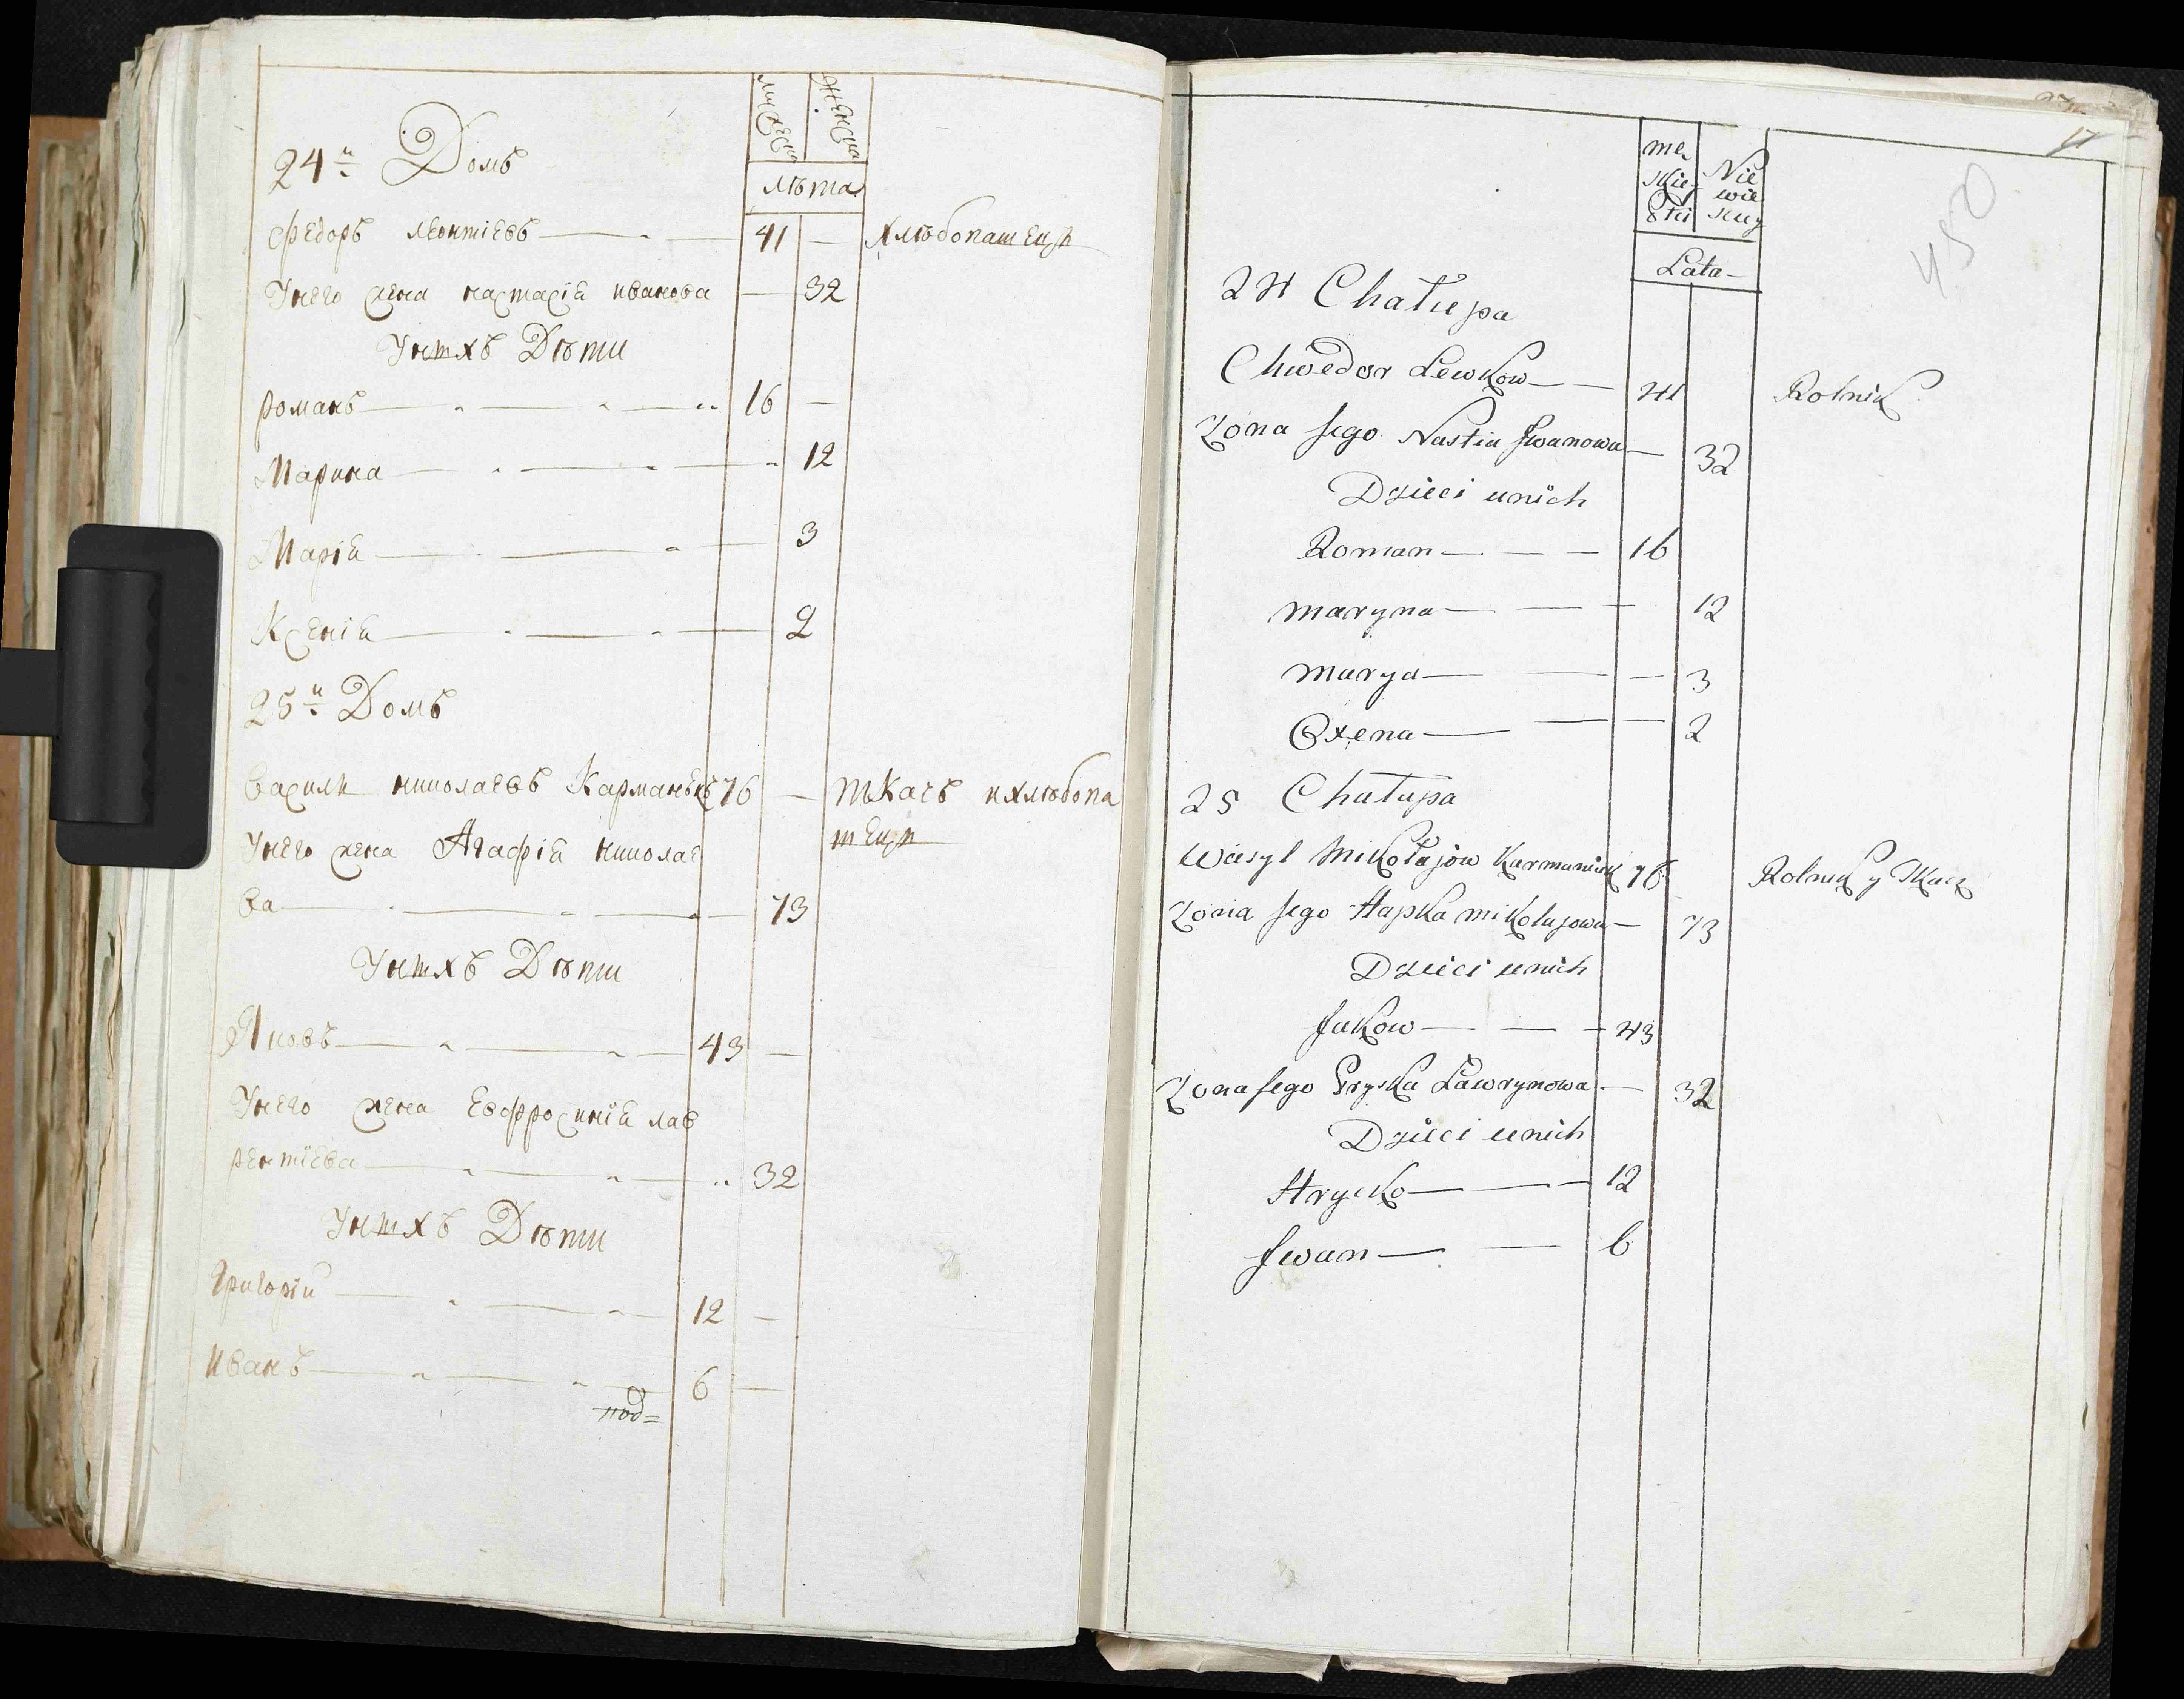 мужеска
женска
лѣта
24й Домъ
Федоръ леонтіевъ 41 — хлѣбопашецъ
Унего жена настасіѧ иванова — 32
Унихъ Дѣти
романъ 16 —
Марина 12
Маріѧ 3
Ксеніѧ 2
25й Домъ
Васили николаевъ Карманъ 76 — ткачъ ихлѣбопа
шецъ
Унего жена Агафіѧ николае
ва 73
Унихъ Дѣти
Яковъ 43 —
Унего жена Евфросиніѧ лав
рентіева 32
Унихъ Дѣти
Григорій 12 —
Иванъ 6 —
под=
17
450
mę
skie
Nie
wie
Lata
24 Chałupa
Chwedor Lewkow 41 Rolnik
Zona Jego Nastia Jwanowa 32
Dzieci unich
Roman 16
Maryna 12
Marya 3
Oxena 2
25 Chałupa
Wasyl Mikołajow Karmaniuk 76 Rolnik y Tkacz
Zona Jego Hapka Mikołajowa 73
Dzieci unich
Jakow 43
Zona Jego Pryska Ławrynowa 32
Dzieci unich
Hrycko 12
Jwan 6